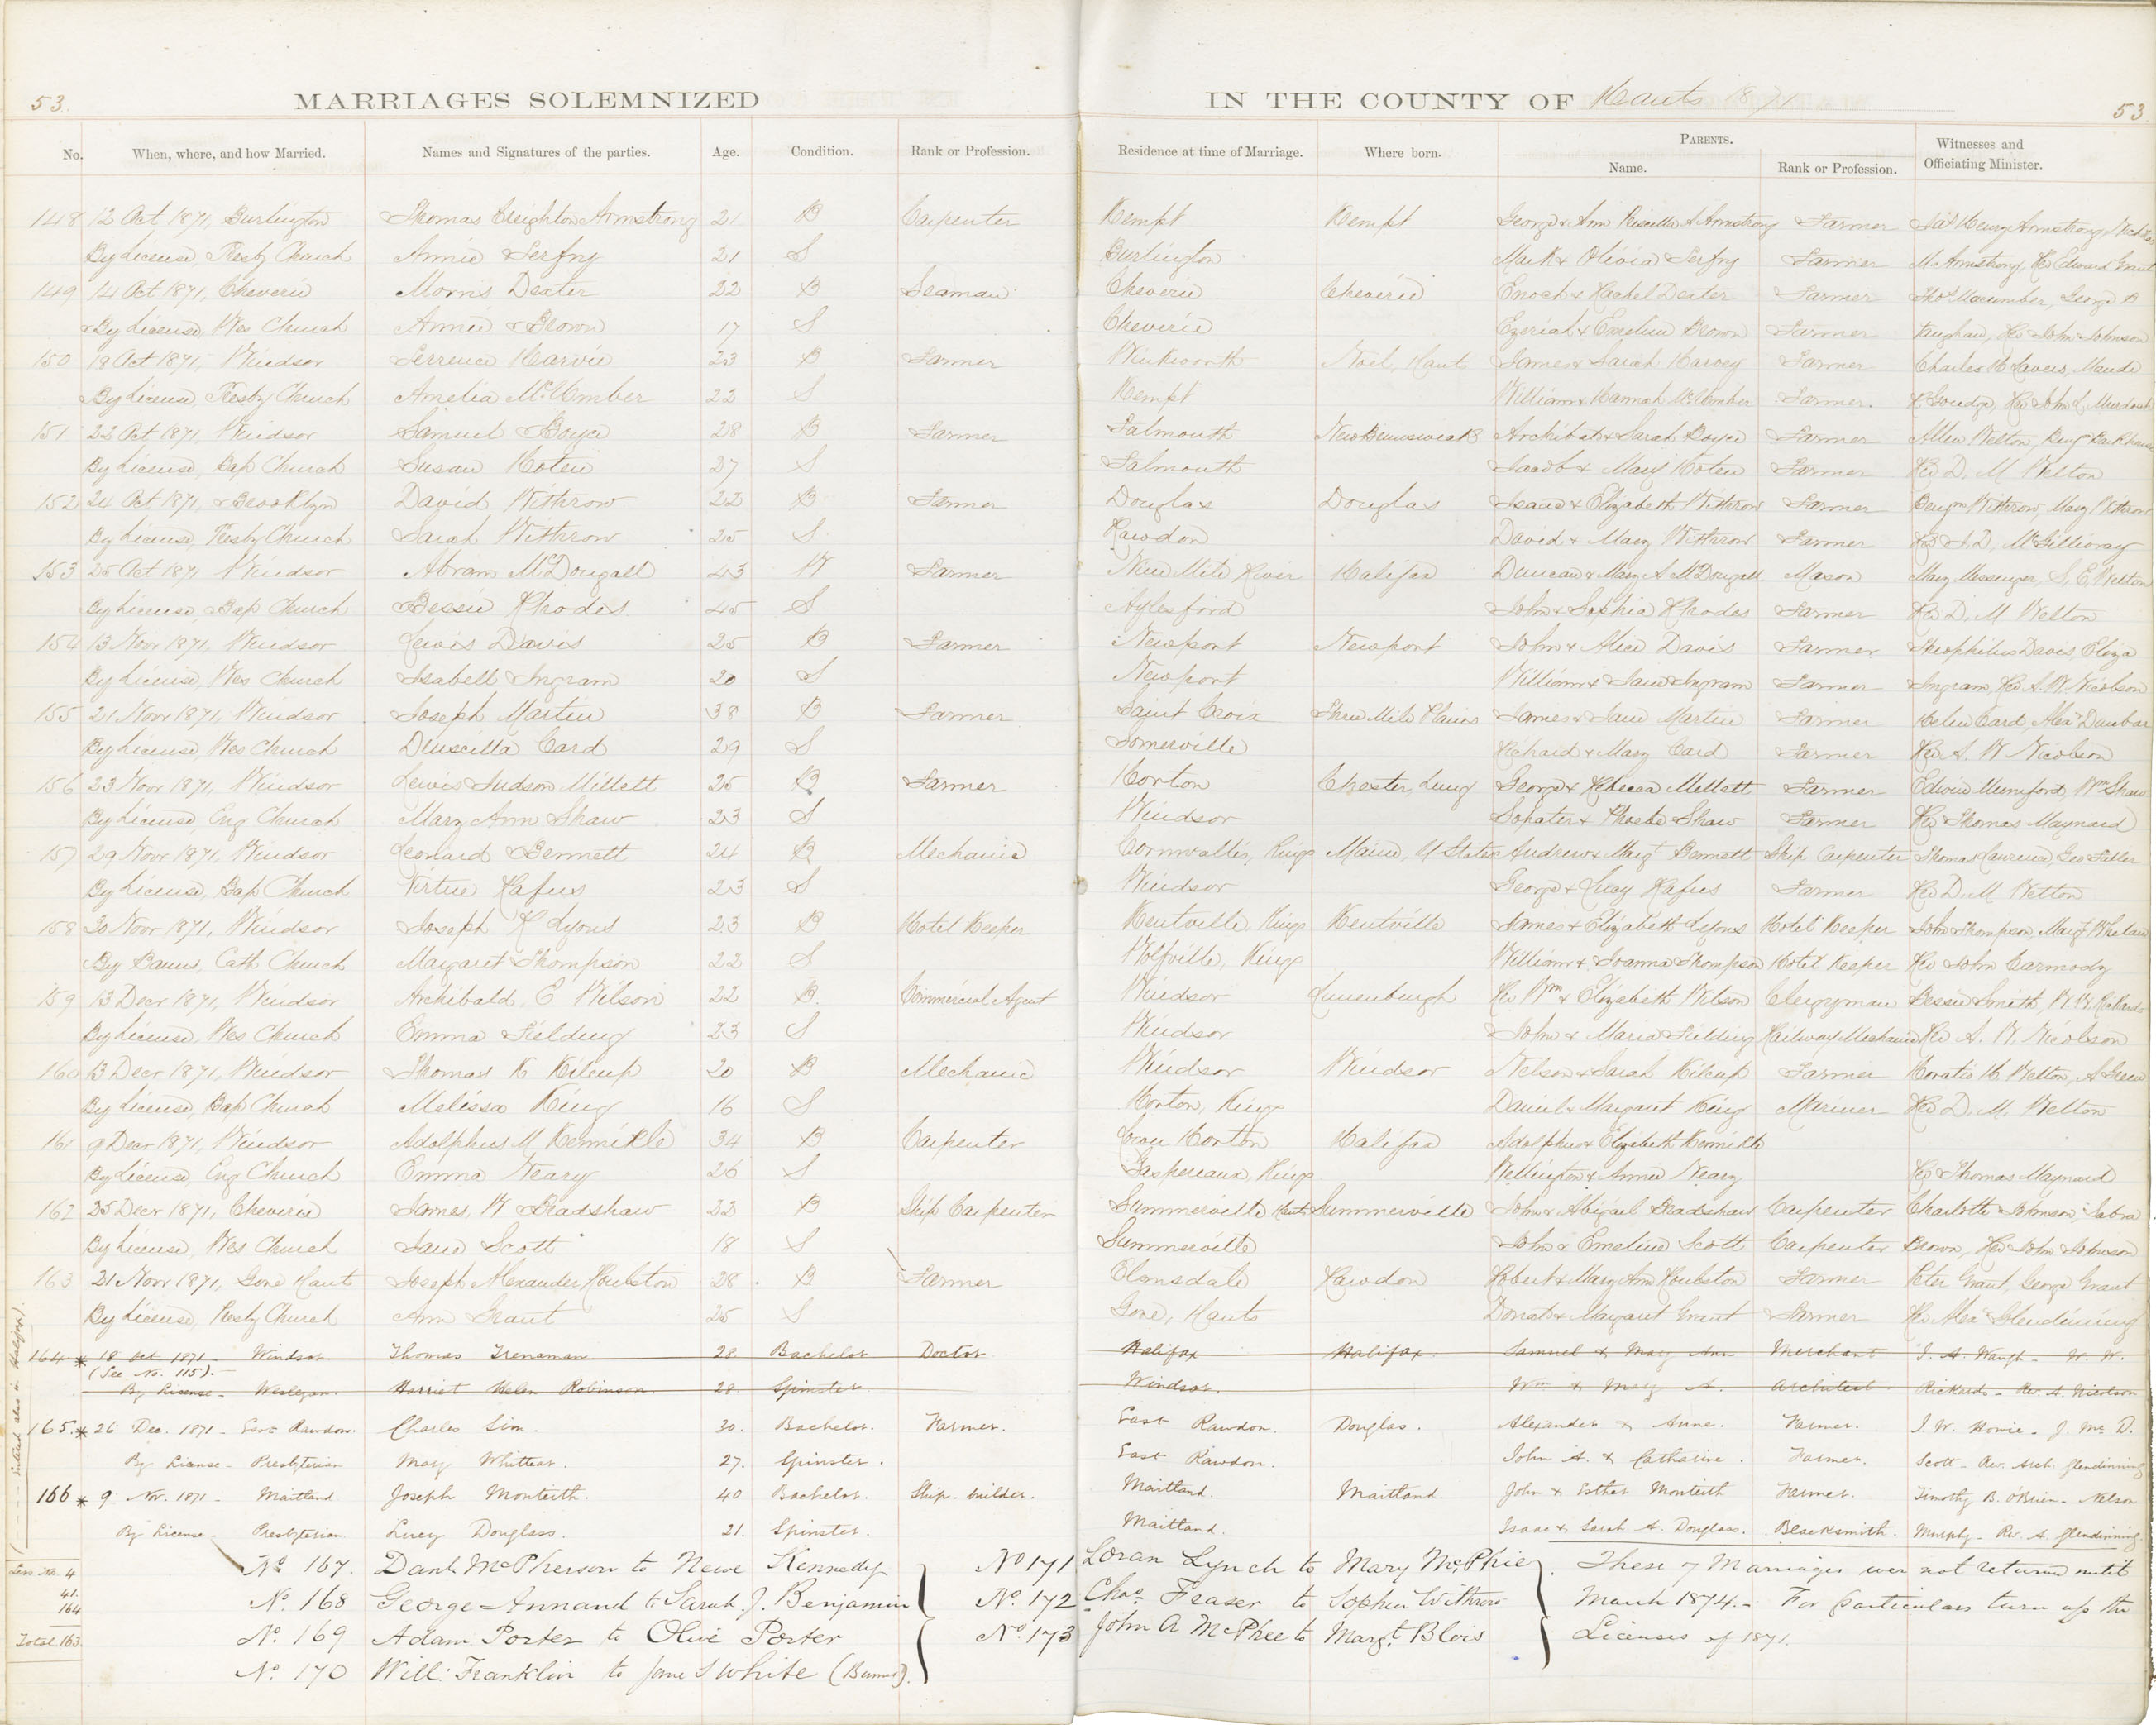 53.
MARRIAGES SOLEMNIZED IN THE COUNTY OF Hants 1871
53
No. When, where, and how Married. Names and Signatures of the parties. Age. Condition. Rank or Profession. Residence at time of Marriage. Where born. PARENTS. Name. Rank or Profession. Witnesses and Officiating Minister.
148 12 Oct 1871, Burlington Thomas Creighton Armstrong 21 B Carpenter Kempt Kempt George & Ann Priscilla Armstrong Farmer Jas Henry Armstrong,
By License, Presby Church Annie 21 S Burlington Mark & Olivia Farmer McArmstrong, Rev Edward Grant
149 14 Oct 1871, Cheverie Morris Dexter 22 B Seaman Cheverie Cheverie Enoch & Rachel Dexter Farmer Thos Macumber, George B
By License, Wes Church Annie Brown 17 S Cheverie & Emeline Brown Farmer Vaughan, Rev John Johnson
150 18 Oct 1871, Windsor Terrence Harvie 23 B Farmer Winkworth Noel, Hants James & Sarah Harvey Farmer Charles H Lavers, Maude
By License Presby Church Amelia McUmber 22 S Kempt William & Hannah McUmber Farmer. Goudge, Rev John L Murdoch
151 22 Oct 1871, Windsor Samuel Boyce 28 B Farmer Falmouth New Brunswick Archibald & Sarah Boyce Farmer Allen Welton, Benj Parkhouse
By License, Bap Church Susan 27 S Falmouth Jacob & Mary Farmer Rev D. M Welton
152 24 Oct 1871, Brooklyn David Withrow 22 B Farmer Douglas Douglas Isaac & Elizabeth Withrow Farmer Benjmn Withrow, Mary Withrow
By License, Presby Church Sarah Withrow 25 S. Rawdon David & Mary Withrow Farmer Rev J. D. McGillivray
153 25 Oct 1871 Windsor Abram McDougall 43 W Farmer Nine Mile River Halifax Duncan & Mary A. McDougall Mason Mary Messenger, S. E. Welton
By License, Bap Church Bessie Rhodes 45 S Aylesford John & Sophia Rhodes Farmer Rev D. M Welton
154 13 Novr 1871, Windsor Lewis Davis 25 B Farmer Newport Newport John & Alice Davis Farmer Theophilus Davis, Eliza
By License, Wes Church Isabell Ingram 20 S Newport William & Jane Ingram Farmer Ingram, Rev A. W. Nicolson
155 21 Novr 1871, Windsor Joseph Martin 38 B Farmer Saint Croix Three Mile Plains James & Jane Martin Farmer Helen Card, Alexr Dunbar
By License, Wes Church Druscilla Card 29 S Somerville Richard & Mary Card Farmer Rev A. W Nicolson
156 23 Novr 1871, Windsor Lewis Judson Millett 25 B Farmer Horton Chester, Lung George & Rebecca Millett Farmer Edwin Mumford, Wm Shaw
By License, Eng Church Mary Ann Shaw 23 S Windsor Sopater & Phoebe Shaw Farmer Rev Thomas Maynard
157 29 Novr 1871, Windsor Leonard Bennett 24 B Mechanic Cornwallis, Kings Maine, U States Andrew & Margt Bennett Ship Carpenter Thomas Laurence, Geo
By License, Bap Church Virtue Rafus 23 S Windsor George & Lucy Rafus Farmer Rev D. M Welton
158 30 Novr 1871, Windsor Joseph R Lyons 23 B Hotel Keeper Kentville Kings Kentville James & Elizabeth Lyons Hotel Keeper John Thompson, Margt Whelan
By Banns, Cath Church Margaret Thompson 22 S Wolfville, Kings William & Joanna Thompson Hotel Keeper Rev John Carmody
159 13 Decr 1871, Windsor Archibald E Wilson 22 B. Commercial Agent Windsor Lunenburgh Rev Wm & Elizabeth Wilson Clergyman Bessie Smith, W. W. Rickards
By License, Wes Church Emma Fielding 23 S Windsor John & Maria Fielding Railway Mechanic Rev A. W. Nicolson
160 13 Decr 1871, Windsor Thomas K Kilcup 20 B Mechanic Windsor Windsor Nelson & Sarah Kilcup Farmer Horatio H Welton, A Green
By License, Bap Church Melissa King 16 S Horton, Kings Daniel & Margaret King Mariner Rev D. M. Welton
161 9 Decr 1871, Windsor Adolphus M 34 B Carpenter Horton Halifax Adolphus & Elizabeth
By License Eng Church Emma Neary 26 S Gaspereaux, Kings Wellington & Annie Neary Rev Thomas Maynard
162 25 Decr 1871, Cheverie James W Bradshaw 22 B Ship Carpenter Summerville Hants Summerville John & Abigail Bradshaw Carpenter Charlotte Johnson,
By License, Wes Church Jane Scott 18 S Summerville John & Emeline Scott Carpenter Brown, Rev John Johnson
163 21 Novr 1871, Gore Hants Joseph Alexander Houlston 28 B Farmer Elmsdale Rawdon Robert & Mary Ann Houlston Farmer Peter Grant, George Grant
By License, Presby Church Ann Grant 25 S Gore, Hants Donald & Margaret Grant Farmer Rev Alexr Glendinning
164 * 18 Oct 1871 - Windsor Thomas Trenaman 28 Bachelor Doctor Halifax Halifax. Samuel & Mary Ann Merchant J. A. Waugh - W. W.
(See No. 115). -
By License - Wesleyan. Harriet Helen Robinson. 28. Spinster Windsor. Wm & Mary A. Architect. Rickards - Rev. A. Nicolson
165. * 26 Dec. 1871 - East Rawdon. Charles Sim. 30. Bachelor. Farmer. East Rawdon. Douglas. Alexander & Anne. Farmer. J. W. Howie - J. Mc D.
By License - Presbyterian Mary Whittear. 27. Spinster. East Rawdon. John A. & Catharine. Farmer. Scott - Rev. Arch. Glendinning
166 * 9 Nov. 1871 - Maitland Joseph Monteith. 40 Bachelor. Ship-builder. Maitland. Maitland John & Esther Monteith Farmer. Timothy B. O'Brien - Nelson
By License - Presbyterian. Lucy Douglass. 21. Spinster. Maitland. Isaac & Sarah A. Douglass. Blacksmith. Murphy - Rev. A. Glendinning
(---- entered also in Halifax).
Less No. 4
41.
164
Total 163.
No. 167. Danl. McPherson to Newe Kennedy
No. 168 George Annand to Sarah J. Benjamin
No. 169 Adam Porter to Olive Porter
No. 170 Will: Franklin to Jane S White (Banns).
No 171 Loran Lynch to Mary McPhie
No. 172 Chas. Fraser to Sophia Withrow
No. 173 John A McPhee to Margt. Blois
These 7 Marriages were not returned until
March 1874. - For particulars turn up the
Licenses of 1871.